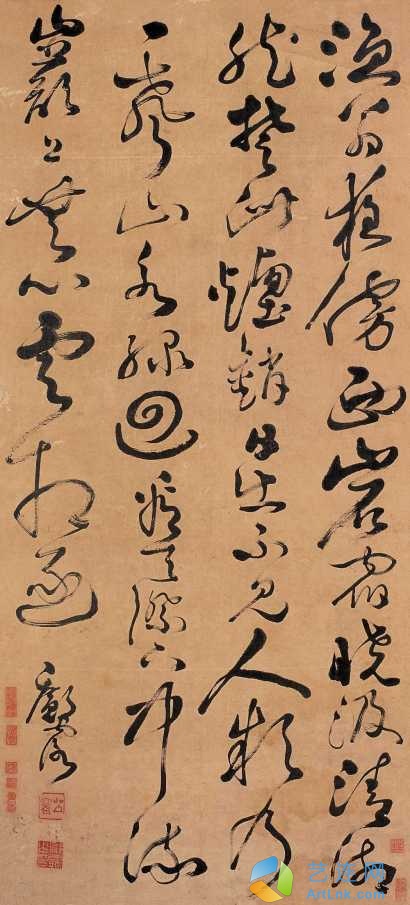 漁翁夜傍西岩宿曉汲清湘
然楚竹煙銷日出不見人欸乃
一聲山水緑回看天際下中流
巖上無心雲相逐